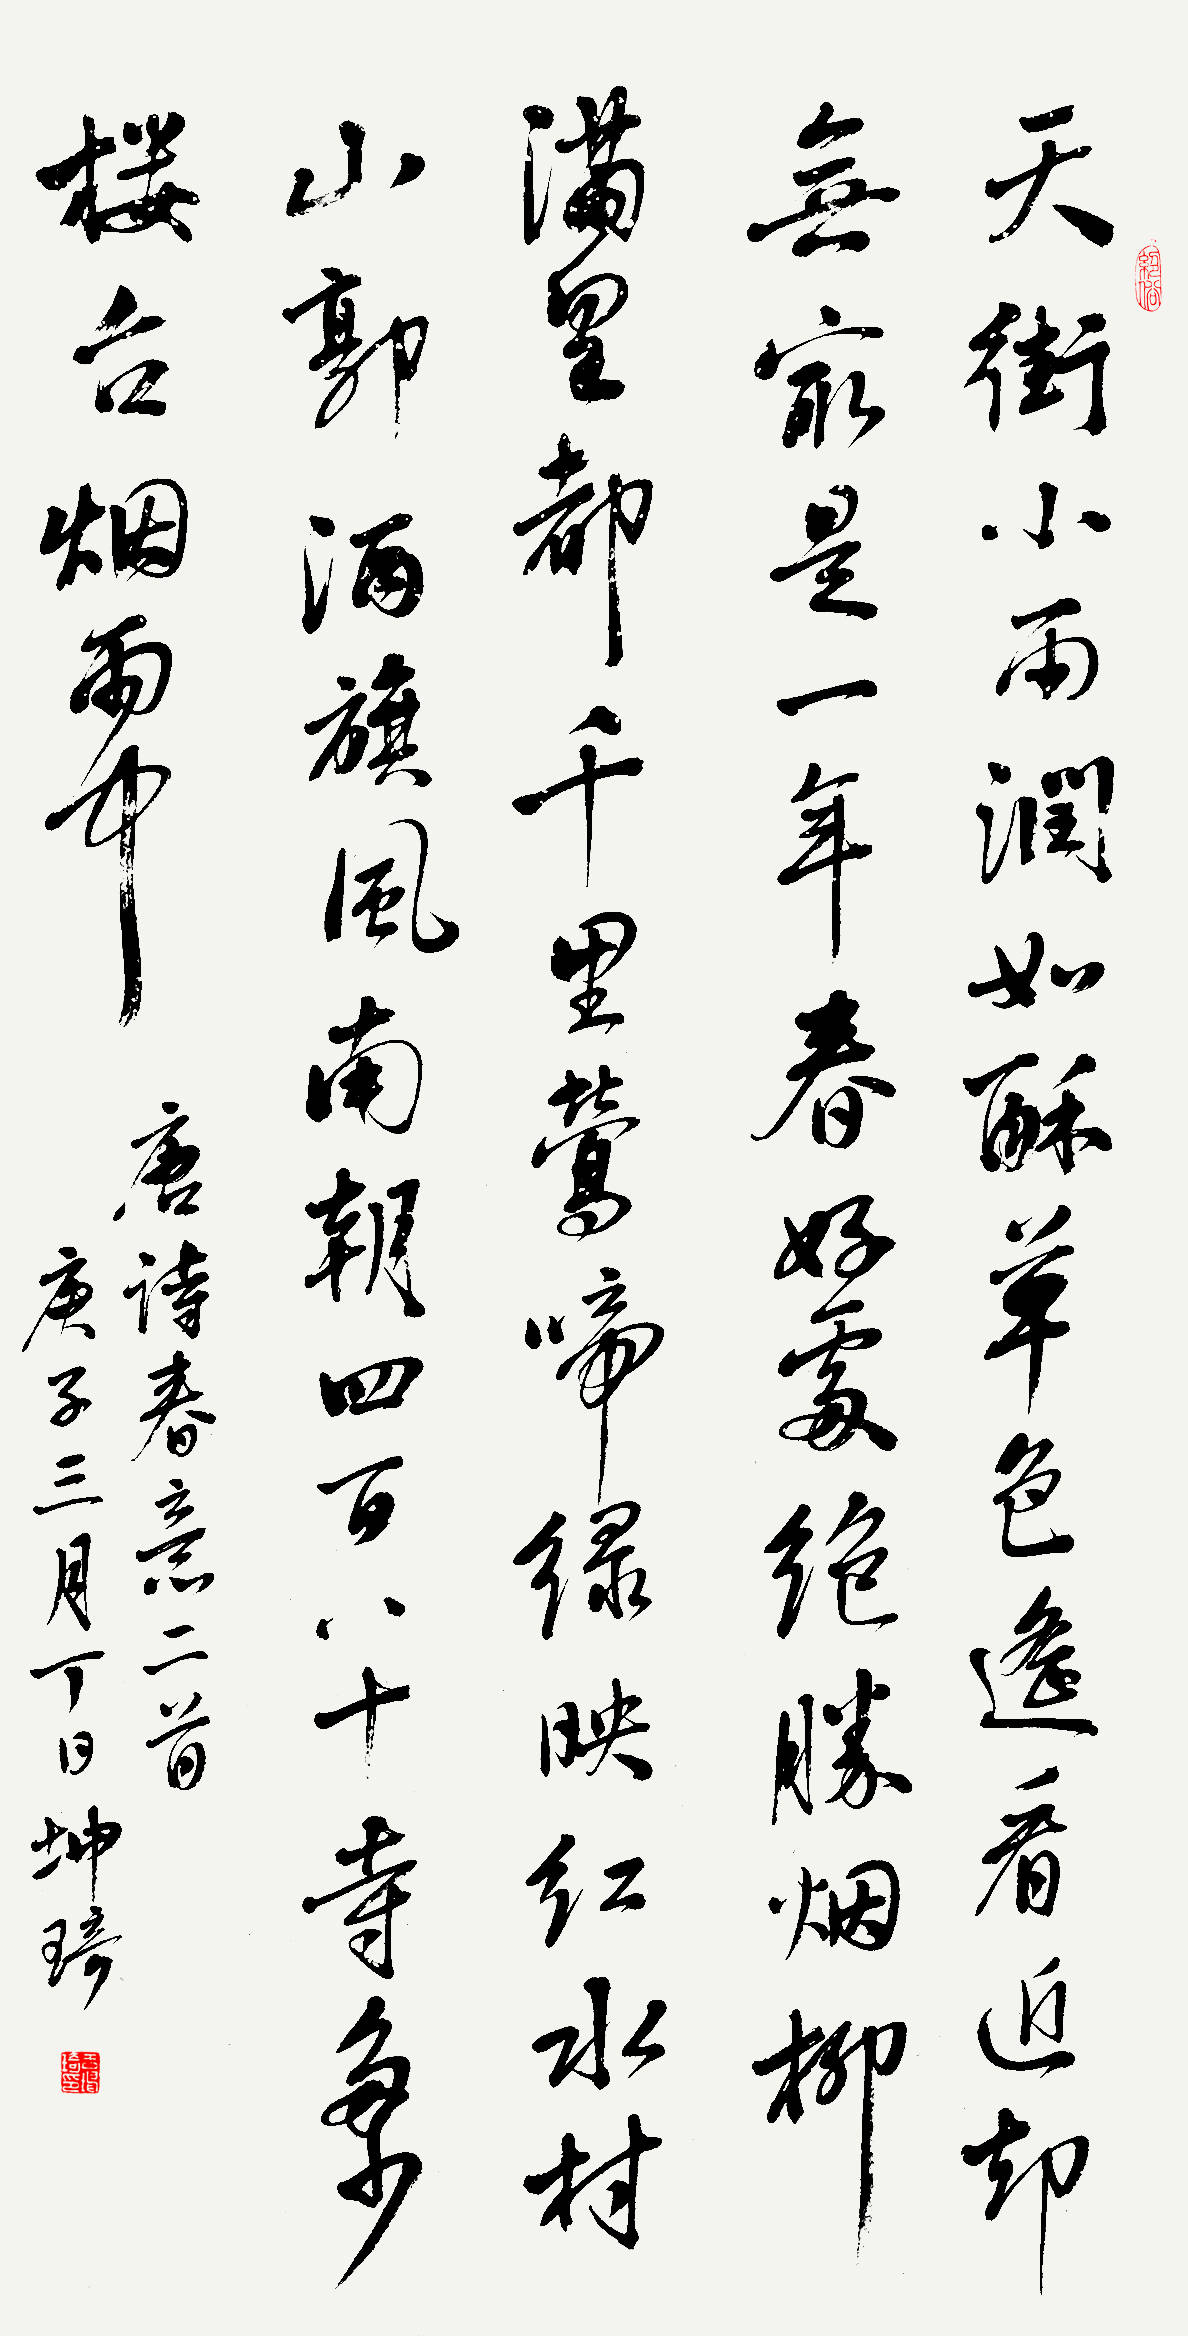 天街小雨潤如酥草色遙看近却
無最是一年春好處絶勝烟柳
滿皇都千里鶯啼绿映红水村
山郭酒旗風南朝四百八十寺多少
楼台烟雨中
唐诗春意二首
庚子三月丁日坤琦